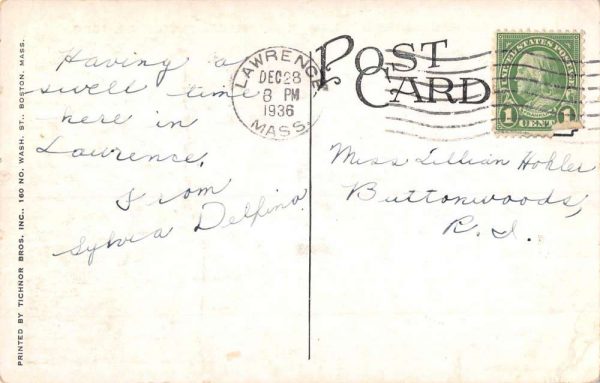 Having a
swell time
here in
Lawrence.
From
Sylvia Delfino
LAWRENCE
DEC 28
8 PM
1936
MASS.
POST
CARD
UNITED STATES POSTAGE
1 CENT 1
Miss Lillian Hohler
Buttonwoods,
R.I.
PRINTED BY TICHNOR BROS. INC., 160 NO. WASH. ST., BOSTON, MASS.